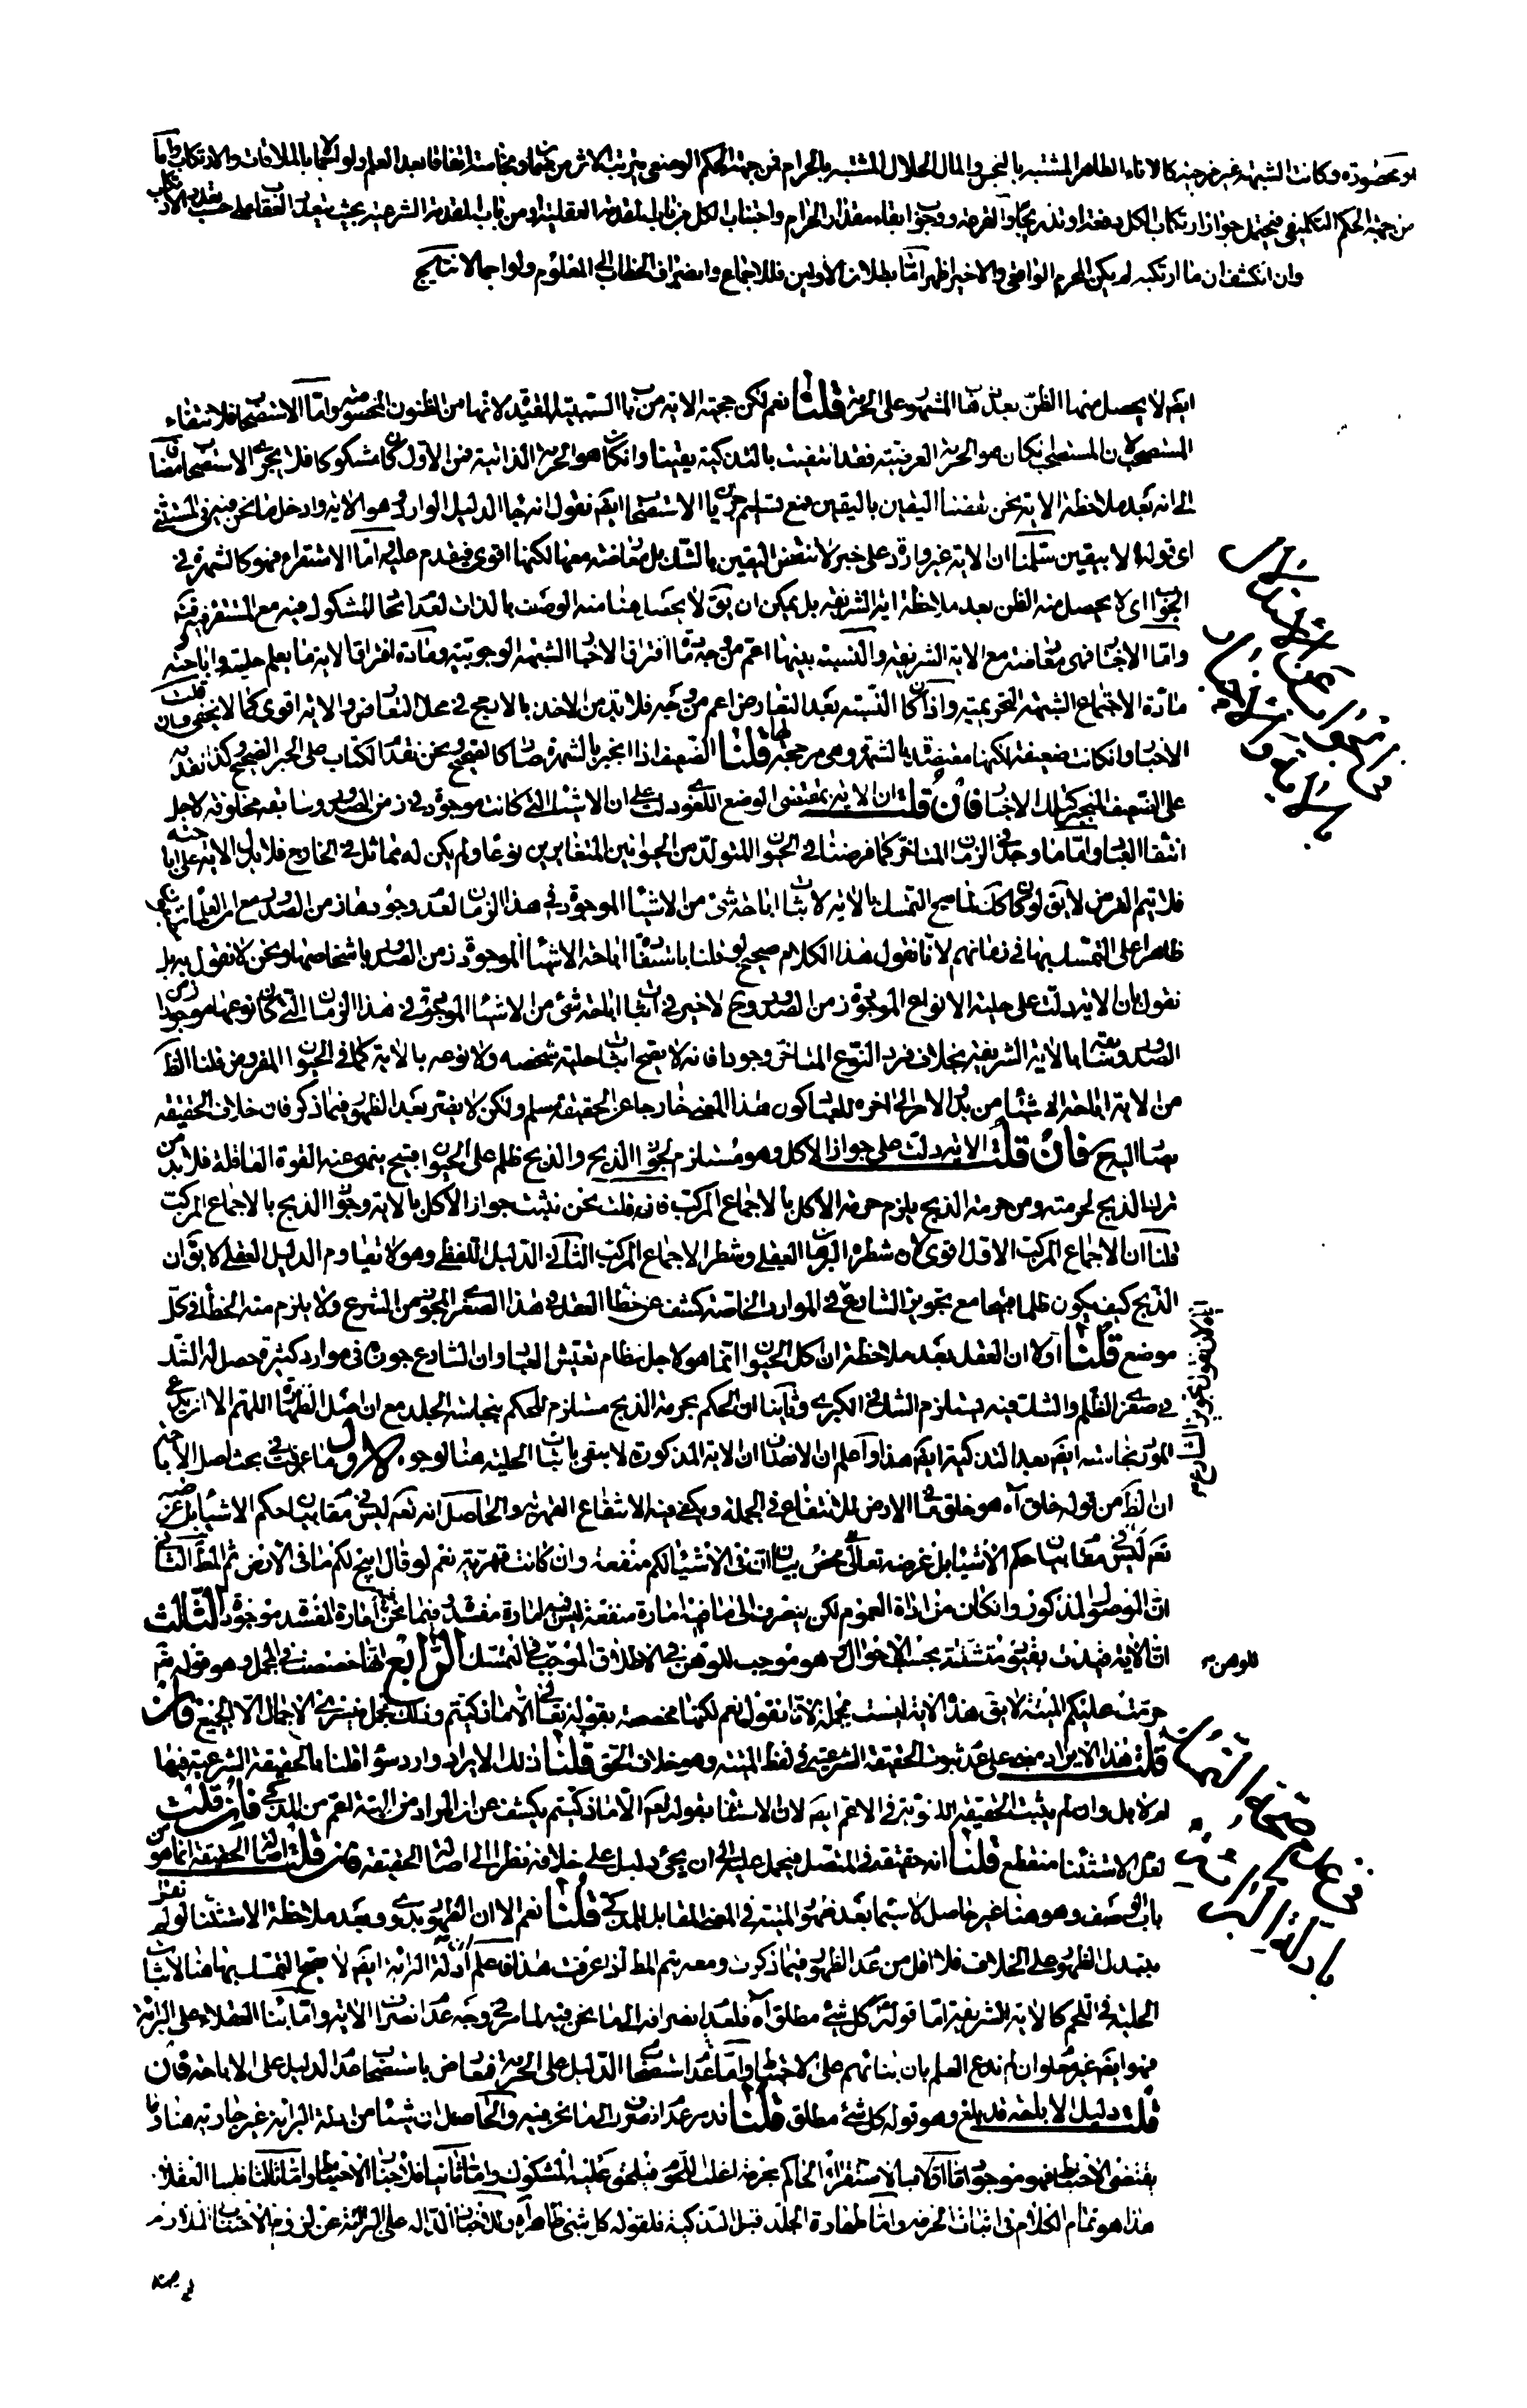 او محصورة وكانت الشبهة غير مزجية كالاناء الطاهر المشتبه بالنجس والمال الحلال المشتبه بالحرام فمن جهة الحكم الوضعى يترتب الاثر من ضمان ونجاسة اتفاقا بعد العلم ولو اجمالا بالملاقات والارتكاب واما
من جهة الحكم التكليفى فيحتمل جواز ارتكاب الكل دفعة او تدريجا والقرعة ووجوب ابقاء مقدار الحرام واجتناب الكل من باب المقدمة العقلية او من باب المقدمة الشرعية بحيث يتعدد العقاب على حسب تعدد الارتكاب
وان انكشف ان ما ارتكبه لم يكن المحرم الواقعى والاخير اظهر اما بطلان الاولين فللاجماع وانصراف الخطاب الى المعلوم ولو اجمالا نتايج
ايضا لا يحصل منها الظن بعد ذهاب المشهور على الحرمة قلنا نعم لكن حجية الاية من باب السببية المقيدة لانها من الظنون المخصوصة واما الاستصحاب فلانتفاء
المستصحب لان المستصحب ان كان هو الحرمة العرضية فقد انتفيت بالتذكية يقينا وان كان هو الحرمة الذاتية فمن الاول كان مشكوكا فلا يجرى الاستصحاب مضافا
الى انه بعد ملاحظة الاية نحن نقضنا اليقين باليقين مع تسليم جريان الاستصحاب ايضا نقول انه جاء الدليل الوارد وهو الاية وادخل ما نحن فيه فى المستثنى
اى قوله الا بيقين سلمنا ان الاية غير واردة على خبر لا تنقض اليقين بالشك بل متعارضة معها لكنها اقوى فيقدم عليه اما الاستقراء فهو كالشهرة فى
الجواب اى لا يحصل منه الظن بعد ملاحظة اية الشريفة بل يمكن ان يق لا يحصل هنا منه الوصف بالذات لعدم اتحاد المشكوك فيه مع المستقرء فيه
واما الاخبار فهى متعارضة مع الاية الشريفة والنسبة بينهما اعم من وجه مادة افتراق الاخبار الشبهة الوجوبية ومادة افتراق الاية ما يعلم حليته واباحته
مادة الاجتماع الشبهة التحريمية واذا كان النسبة بعد التعارض اعم من وجه فلابد من الاخذ بالارجح فى محل التعارض والاية اقوى كما لا يخفى فان قلت
الاخبار وان كانت ضعيفة لكنها معتضدة بالشهرة وهى مرجحة لها قلنا الضعيف اذا انجبر بالشهرة صار كالصحيح ونحن نقدم الكتاب على الخبر الصحيح وكذا نقدمه
على الضعيف المنجبر كتلك الاخبار فان قلت ان الاية بمقتضى الوضع اللغوى دلت على ان الاشياء التى كانت موجودة فى زمن الصدور وسابقه مخلوقة لاجل
انتفاع العباد واما ما وجد فى الزمان المتاخر كما فرضنا فى الحيوان المتولد من الحيوانين المتغايرين نوعا ولم يكن له مماثل فى الخارج فلا يدل الاية على اباحته
فلا يتم الغرض لا يق لو كان كذلك لما صح التمسك بالاية لاثبات اباحة شئ من الاشياء الموجودة فى هذا الزمان لعدم وجودها فى زمن الصدور مع ان العلماء متفقون
ظاهرا على التمسك بها فى زمانهم لانا نقول هذا الكلام صحيح لو قلنا باستفادة اباحة الاشياء الموجودة زمن الصدور باشخاصها ونحن لا نقول به بل
نقول بان الاية دلت على حلية الانواع الموجودة زمن الصدور وح لا ضير فى اثبات اباحة شئ من الاشياء الموجودة فى هذا الزمان التى كان نوعها موجودا زمن
الصدور وسابقه بالاية الشريفة بخلاف فرد النوع المتاخر وجودا فانه لا يصح اثبات حلية شخصه ولا نوعه بالاية كما فى الحيوان المفروض قلنا الظ
من الاية اباحة الاشياء من بدو الامر الى اخره للعباد كون هذا المعنى خارجا عن الحقيقة مسلم ولكن لا يضر بعد الظهور فيما ذكر فان خلاف الحقيقة
يصار اليه ح فان قلت الاية دلت على جواز الاكل وهو مستلزم لجواز الذبح والذبح ظلم على الحيوان قبيح ينهى عنه القوة العاقلة فلابد من
ترك الذبح لحرمته ومن حرمة الذبح يلزم حرمة الاكل بالاجماع المركب فان قلت نحن نثبت جواز الاكل بالاية وجواز الذبح بالاجماع المركب
قلنا ان الاجماع المركب الاول اقوى لان شطره البرهان العقلى وشطر الاجماع المركب الثانى الدليل اللفظى وهو لا يقاوم الدليل العقلى لا يق ان
الذبح كيف يكون ظلما قبيحا مع تجويز الشارع فى الموارد الخاصة كشف عن خطاء العقل فى هذا الصغرى المجوزة من الشرع ولا يلزم منه الخطاء فى كل
موضع قلنا اولا ان العقل بعد ملاحظة ان اكل الحيوان انما هو لاجل نظام تعيش العباد وان الشارع جوزه فى موارد كثيرة حصل له الشك
فى صغرى الظلم والشك فيه يستلزم الشك فى الكبرى وثانيا ان الحكم بحرمة الذبح مستلزم للحكم بنجاسة الجلد مع ان اصل الطهارة اللهم الا ان يدعى
نجاسته ايضا بعد التذكية ايضا هذا واعلم ان الانصاف ان الاية المذكورة لا ينفى باثبات الحلية هنا لوجوه الاول ما عرفت فى بحث اصل الاباحة
ان الظ من قوله خلق آه هو خلق ما فى الارض للانتفاع فى الجملة ويكفى فيه الانتفاع القهرية والحاصل انه تعم ليس فى مقام بيان حكم الاشياء بل غرضه
تعم ليس فى مقام بيان حكم الاشياء بل غرضه تعالى محض بيان ان فى الاشياء لكم منفعة وان كانت قهرية نعم لو قال ابيح لكم ما فى الارض ثم المط الثانى
ان الموصول المذكور وان كان من اداة العموم لكن ينصرف الى ما فيه امارة منفعة ليس فيه امارة مفسدة وفيما نحن فيه امارة المفسدة موجودة الثالث
ان الاية قيدت بقيود متشتتة بحسب الاحوال وهو موجب للوهن فى الاطلاق الموجب فى التمسك الرابع انها خصصت فى الجمل وهو قوله تعم
حرمت عليكم الميتة لا يق هذه الاية ليست بمجملة لانا نقول نعم لكنها مخصصة بقوله تعالى الا ما ذكيتم وذلك مجمل فيسرى الاجمال الى الجميع فان
قلت هذا الايراد مبنى على عدم ثبوت الحقيقة الشرعية فى لفظ الميتة وهو خلاف التحقيق قلنا ذلك الايراد وارد سواء قلنا بالحقيقة الشرعية فيها
ام لا بل وان لم يثبت الحقيقة اللغوية فى الاعم ايضا لان الاستثناء بقوله تعم الا ما ذكيتم يكشف عن ان المراد من الميتة الاعم من المذكى فان قلت
لعل الاستثناء منقطع قلنا انه حقيقة فى المتصل فيحمل عليه الى ان يجئ دليل على خلافه نظرا الى اصالة الحقيقة فان قلت اصالة الحقيقة انما هو من
باب الوصف وهو هنا غير حاصل لا سيما بعد ظهور الميتة فى المعنى المقابل للمذكى قلنا نعم الا ان الظهور بدوى وبعد ملاحظة الاستثناء لو لم
يتبدل الظهور على الخلاف فلا اقل من عدم الظهور فيما ذكرت ومعه يتم المط اذا عرفت هذا فاعلم ان ادلة البرائة ايضا لا يصح التمسك بها هنا لاثبات
الحلية فى اللحم كالاية الشريفة اما قوله كل شئ مطلق آه فلعدم انصرافه الى ما نحن فيه لما مر فى وجه عدم انصراف الاية واما بناء العقلاء على البرائة
فهو ايضا غير معلوم ان لم ندع العلم بان بنائهم على الاحتياط واما عدم استصحاب الدليل على الحرمة فمعارض باستصحاب عدم الدليل على الاباحة فان
قلت دليل الاباحة قد بلغ وهو قوله كل شئ مطلق قلنا قد مر عدم انصرافه الى ما نحن فيه والحاصل ان شيئا من ادلة البرائة غير جارية هنا واما
مقتضى الاحتياط فهو موجود اما اولا فبالاستقراء الحاكم بحرمة اغلب اللحوم فيلحق عليه المشكوك واما ثانيا فلاخبار الاحتياط واما ثالثا فلبناء العقلاء
هذا هو تمام الكلام فى اثبات الحرمة واما طهارة الجلد قبل التذكية فلقوله كل شئ طاهر آه وللاخبار الدالة على البرائة عن لزوم الاجتناب
للوهن